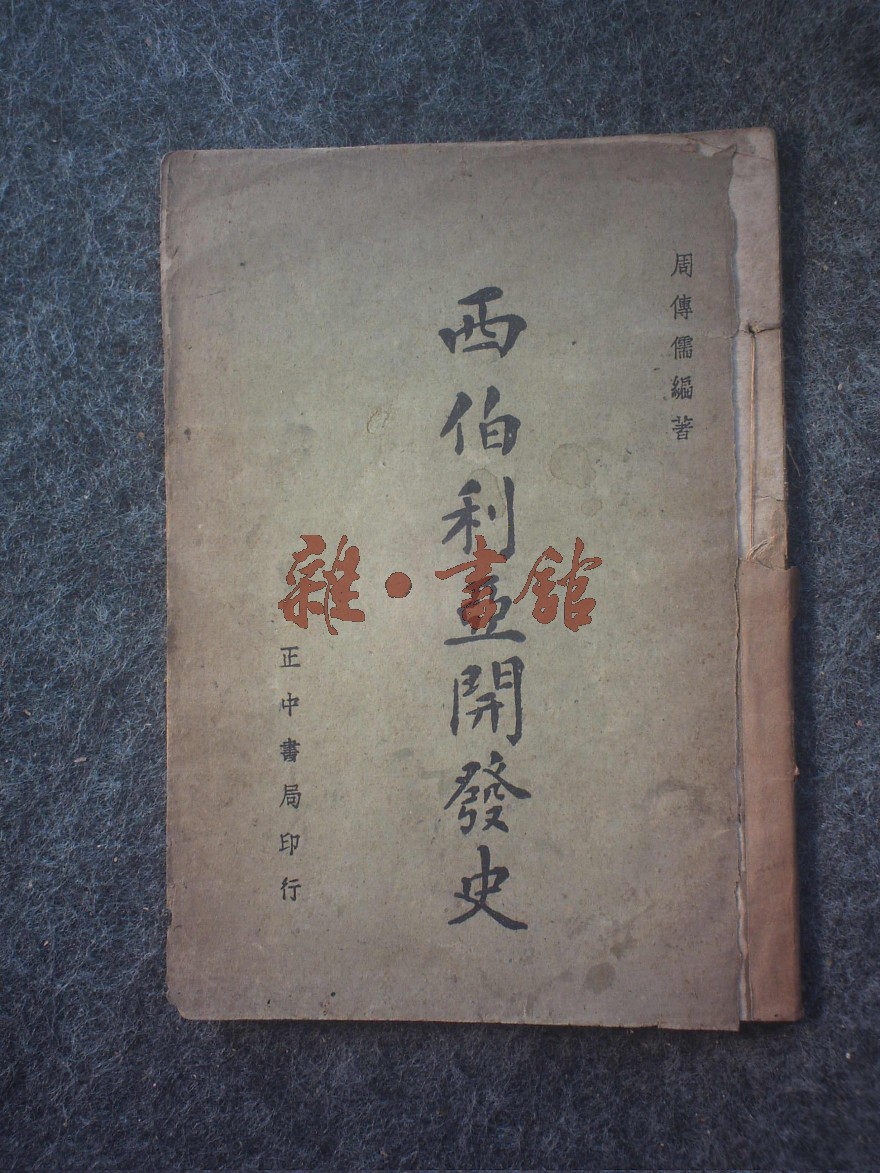 周傳儒編著
西伯利亞開發史
正中書局印行
雜·書館